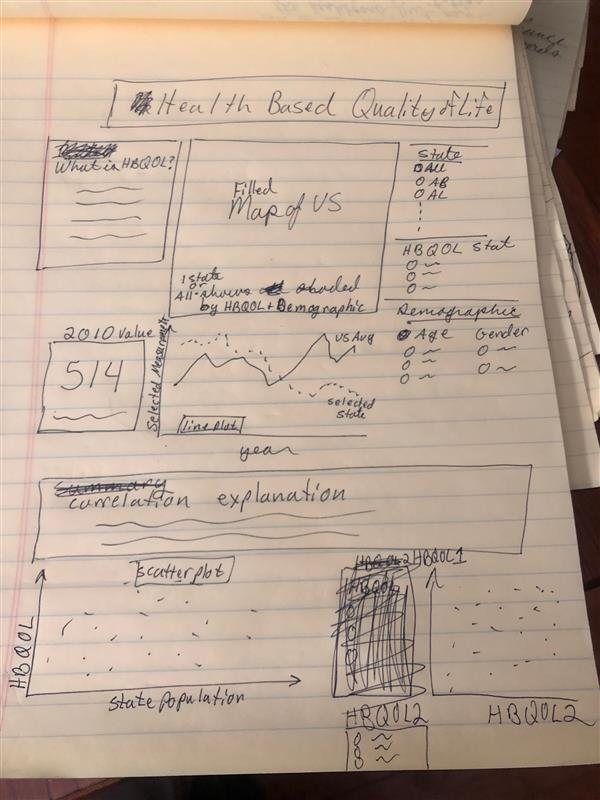 Health Based Quality of Life
What is HBQOL?
Filled
Map of US
1 state
or
All-shows shaded
by HBQOL + Demographic
State
All
AB
AL
HBQOL Stat
Demographic
Age Gender
2010 value
514
Selected Measurement
US Avg
selected
state
line plot
year
Summary
correlation explanation
scatterplot
HBQOL
State Population
HBQOL2 HBQOL1
HBQOL
HBQOL2
HBQOL2